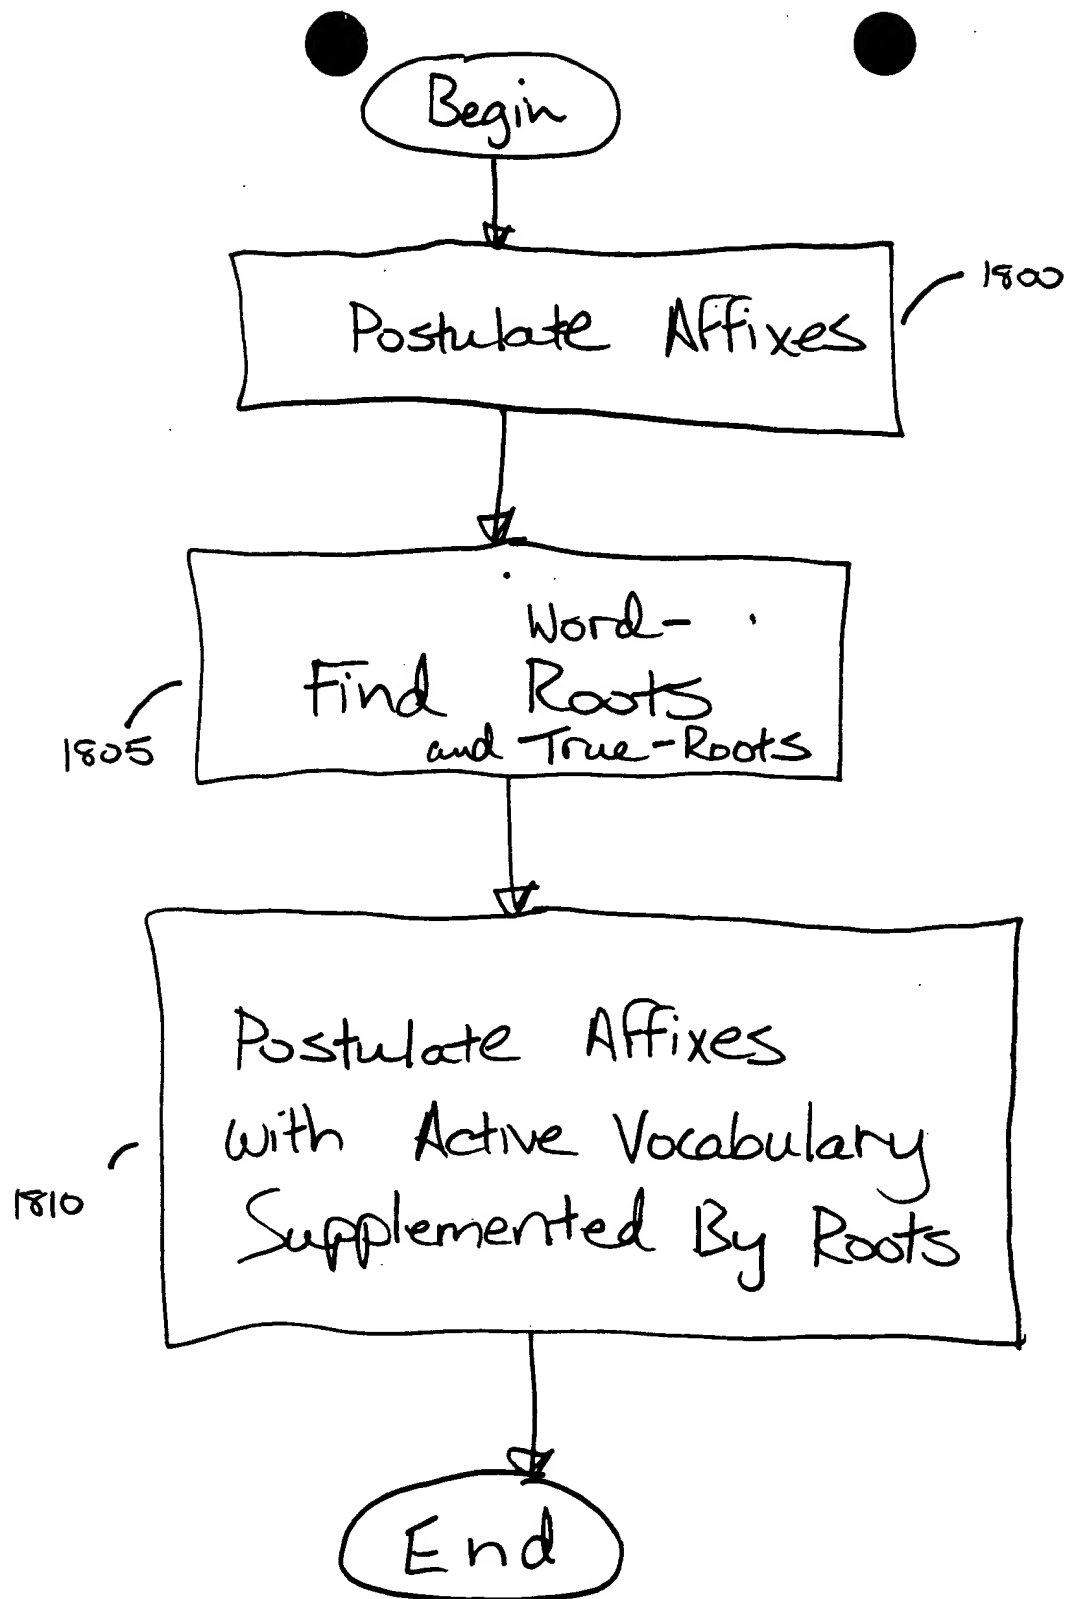 Begin
Postulate Affixes
1800
Word-
Find Roots
and True-Roots
1805
Postulate Affixes
with Active Vocabulary
Supplemented By Roots
1810
End